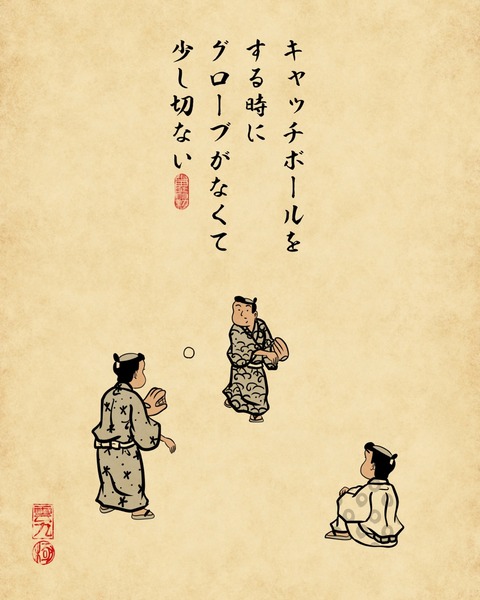 キャッチボールを
する時に
グローブがなくて
少し切ない